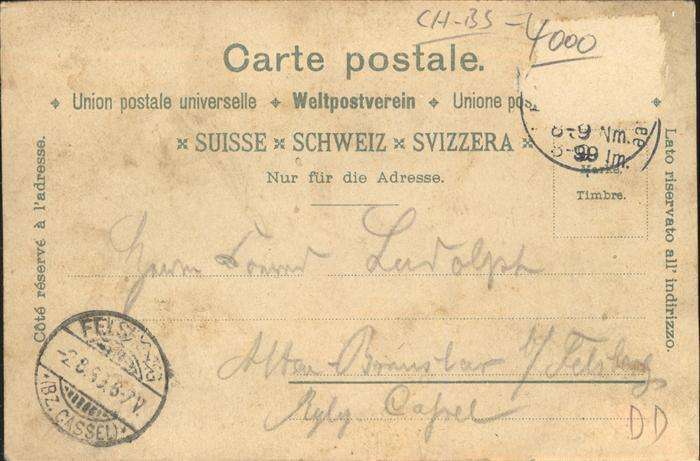 CH-BS-4000
Carte postale.
Union postale universelle ✦ Weltpostverein ✦ Unione po
SUISSE × SCHWEIZ × SVIZZERA
Nur für die Adresse.
Marke.
Timbre.
8-9 Nm.
99
Côté réservé à l'adresse.
Lato riservato all' indirizzo.
Herrn Conrad Ludolph
Alten Brunslar b/ Felsberg
Cassel
FELSBERG
(BZ. CASSEL)
DD